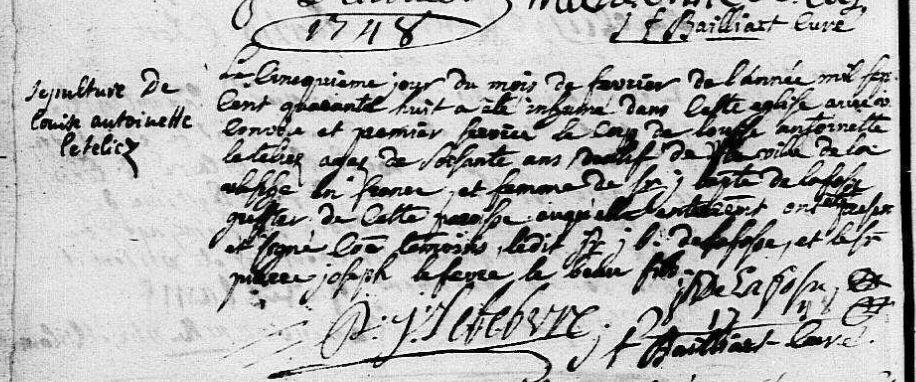 1748
j f Bailliart Curé
sepulture De
louise antoinette
letelier
Le cincquieme jour du mois de fevrier de l'année mil sep
cent quarante huit a été inhumé dans cette eglise avec
convoie et premier service le corp de louise antoinette
agez de soisante ans de ville de
en france, et femme de sr j bapte delafosse
greffier de cette paroisse auquel enterrement ont été presen
et signé come temoins, ledit sr j b. delafosse, et le sr
pierre joseph lefevre le beau fils
J B De Lafosse
P. J. Lefebvre.
j f Bailliart Curé.